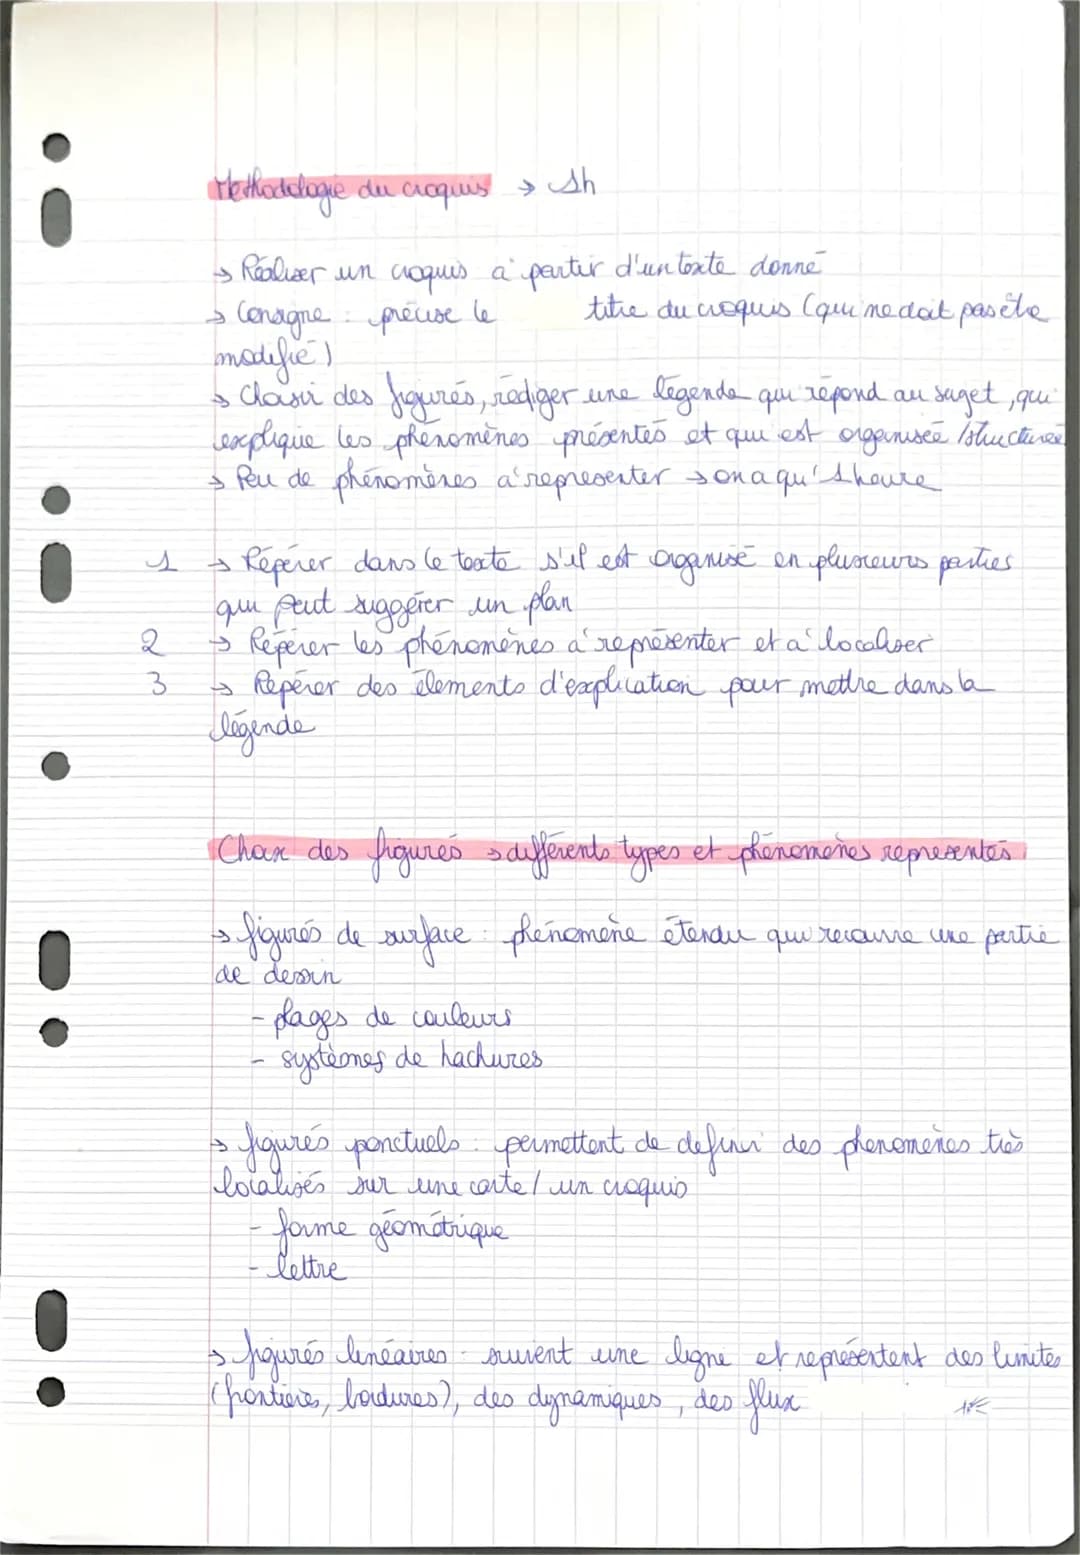 Methodologie du croquis → 1h
→ Réaliser un croquis à partir d'un texte donné
→ Consigne : précise le titre du croquis (qui ne doit pas être
modifié)
→ Choisir des figurés, rédiger une légende qui répond au sujet, qui
explique les phénomènes présentés et qui est organisée / structurée
→ Peu de phénomènes à representer → on a qu'1 heure
1 → Répérer dans le texte s'il est organisé en plusieurs parties
qui peut suggérer un plan
2 → Répérer les phénomènes à représenter et à localiser
3 → Répérer des élements d'explication pour mettre dans la
légende
Choix des figurés → différents types et phénomènes representés
→ figurés de surface : phénomène étendu qui recouvre une partie
de dessin
- plages de couleurs
- systèmes de hachures
→ figurés ponctuels : permettent de definir des phenomènes très
localisés sur une carte / un croquis
- forme géométrique
- lettre
→ figurés linéaires : suivent une ligne et représentent des limites
(frontières, bordures), des dynamiques, des flux